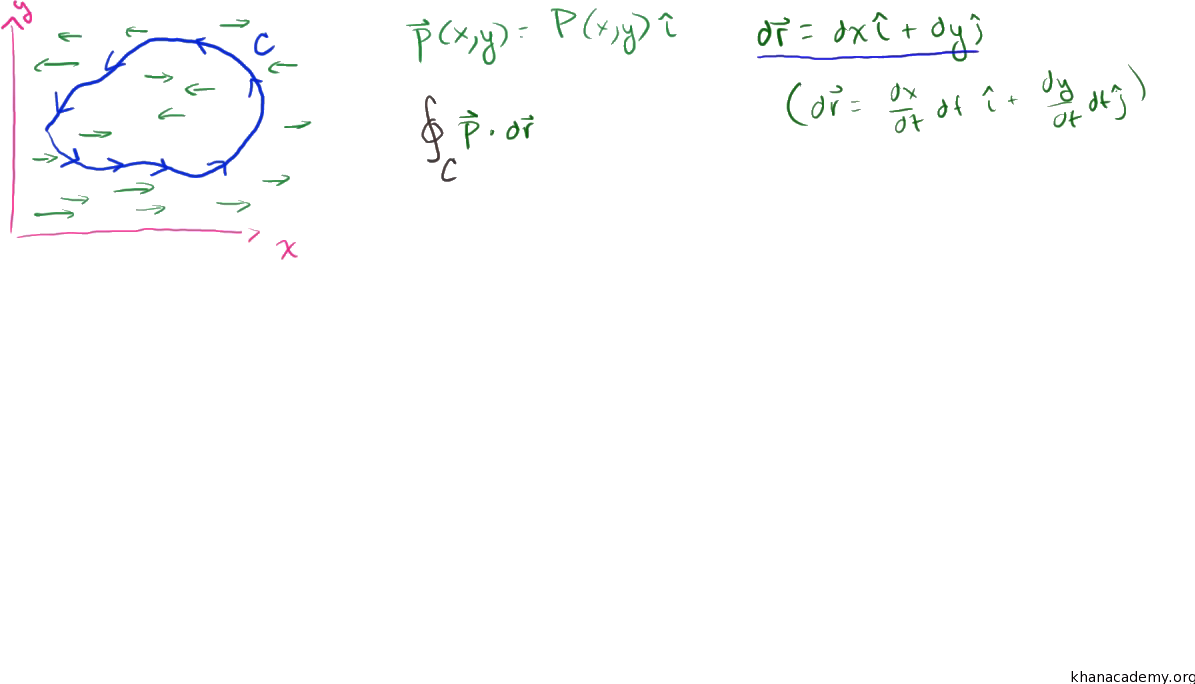 y
C
P⃗(x,y) = P(x,y) î
dr⃗ = dx î + dy ĵ
(dr⃗ = dx/dt dt î + dy/dt dt ĵ)
∮_C P⃗ · dr⃗
x
khanacademy.org